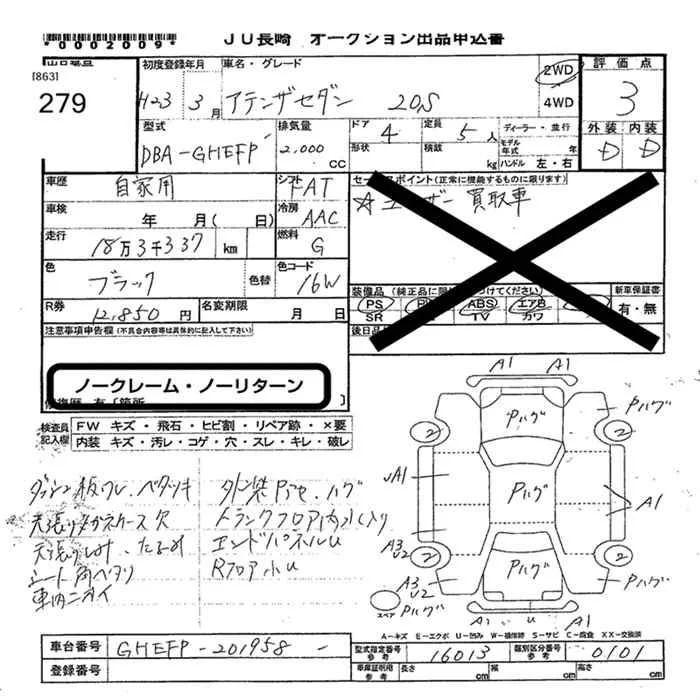 *0002009*
JU長崎 オークション出品申込書
[863]
279
初度登録年月
H23 3月
車名・グレード
アテンザセダン 20S
2WD
4WD
評価点
3
外装 内装
D D
型式
DBA-GHEFP
排気量
2,000 CC
ドア 4
定員 5人
形状
積載 kg
ディーラー・並行
モデル年式 年
ハンドル 左・右
車歴
自家用
シフト
FAT
車検
年 月( 日)
冷房
AAC
走行
18万3千337 km
燃料
G
色
ブラック
色替
色コード
16W
R券
12,850円
名変期限
月 日
セールスポイント(正常に機能するものに限ります)
買取車
装備品
PS ABS エアB
SR TV カワ
新車保証書
有・無
後日品
注意事項申告欄(不具合内容等は具体的に記入して下さい)
ノークレーム・ノーリターン
検査員記入欄
FW キズ・飛石・ヒビ割・リペア跡・×要
内装 キズ・汚レ・コゲ・穴・スレ・キレ・破レ
ダッシュ板ワレ、ベタツキ
外装Pアセ、ハゲ
天張りメガネケース欠
トランクフロア内水入り
天張りしみ、たるみ
エンドパネルU
シート角ヘタリ
Rフロア小U
車内ニオイ
A1 A1
Pハゲ
Pハゲ
2 2
A1
Pハゲ
A1
A3
U2
2 2
Pハゲ
A3
U2
Pハゲ
Pハゲ
スペア
A1 U A1
A-キズ E-エクボ U-凹み W-補修跡 S-サビ C-腐食 XX-交換済
車台番号
GHEFP-201958
型式指定番号 参考
16013
類別区分番号 参考
0101
登録番号
車庫証明用 参考
長さ cm
幅 cm
高さ cm